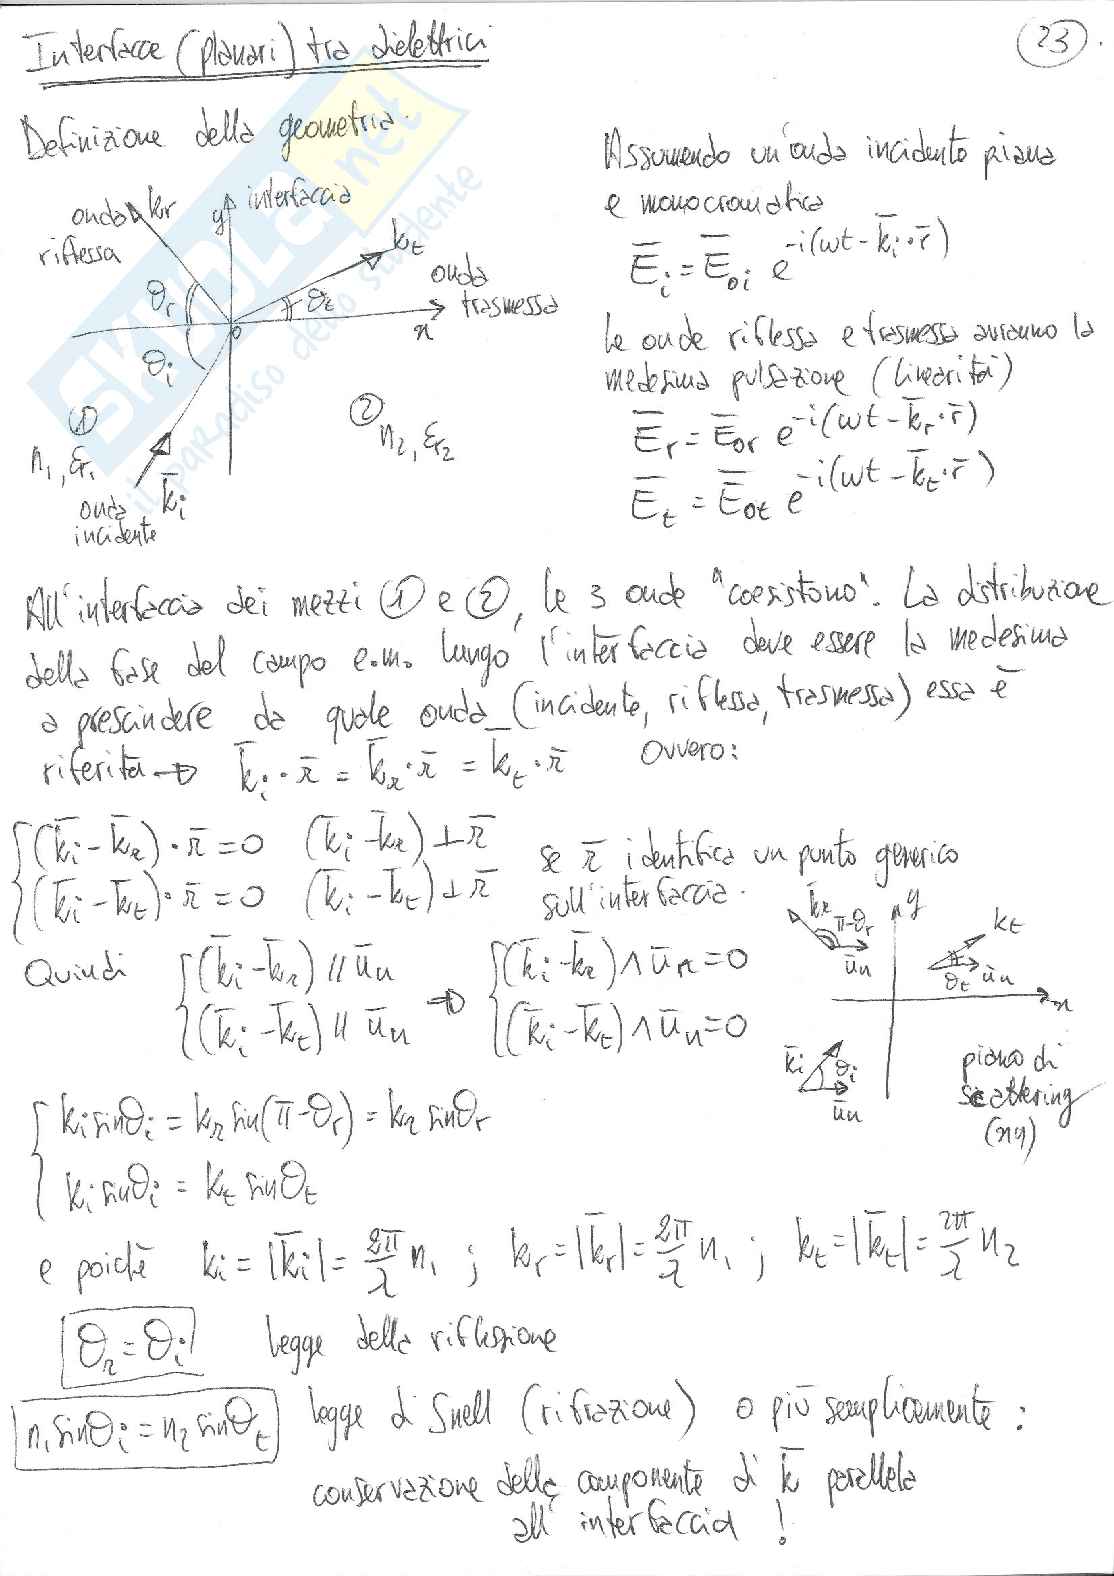 Interfacce (planari) tra dielettrici
23
Definizione della geometria.
onda riflessa
kr
y
interfaccia
kt
onda trasmessa
θr
θt
x
o
θi
①
n1, εr1
②
n2, εr2
onda incidente
k̄i
Assumendo un'onda incidente piana
e monocromatica
Ēi = Ēoi e^-i(ωt - k̄i·r̄)
Le onde riflessa e trasmessa avranno la
medesima pulsazione (linearità)
Ēr = Ēor e^-i(ωt - k̄r·r̄)
Ēt = Ēot e^-i(ωt - k̄t·r̄)
All'interfaccia dei mezzi ① e ②, le 3 onde "coesistono". La distribuzione
della fase del campo e.m. lungo l'interfaccia deve essere la medesima
a prescindere da quale onda (incidente, riflessa, trasmessa) essa è
riferita → k̄i·r̄ = k̄r·r̄ = k̄t·r̄ ovvero:
{(k̄i - k̄r)·r̄ = 0 (k̄i - k̄r) ⊥ r̄
{(k̄i - k̄t)·r̄ = 0 (k̄i - k̄t) ⊥ r̄
se r̄ identifica un punto generico
sull'interfaccia.
Quindi {(k̄i - k̄r) // ūn ⇒ {(k̄i - k̄r) ∧ ūn = 0
{(k̄i - k̄t) // ūn {(k̄i - k̄t) ∧ ūn = 0
k̄r
π-θr
ūn
y
kt
θt
ūn
x
k̄i
θi
ūn
piano di
scattering
(xy)
{ki sinθi = kr sin(π-θr) = kr sinθr
{ki sinθi = kt sinθt
e poichè ki = |k̄i| = 2π/λ n1 ; kr = |k̄r| = 2π/λ n1 ; kt = |k̄t| = 2π/λ n2
θr = θi legge della riflessione
n1 sinθi = n2 sinθt legge di Snell (rifrazione) o più semplicemente :
conservazione della componente di k̄ parallela
all'interfaccia !
SKUOLA.net
il paradiso dello studente